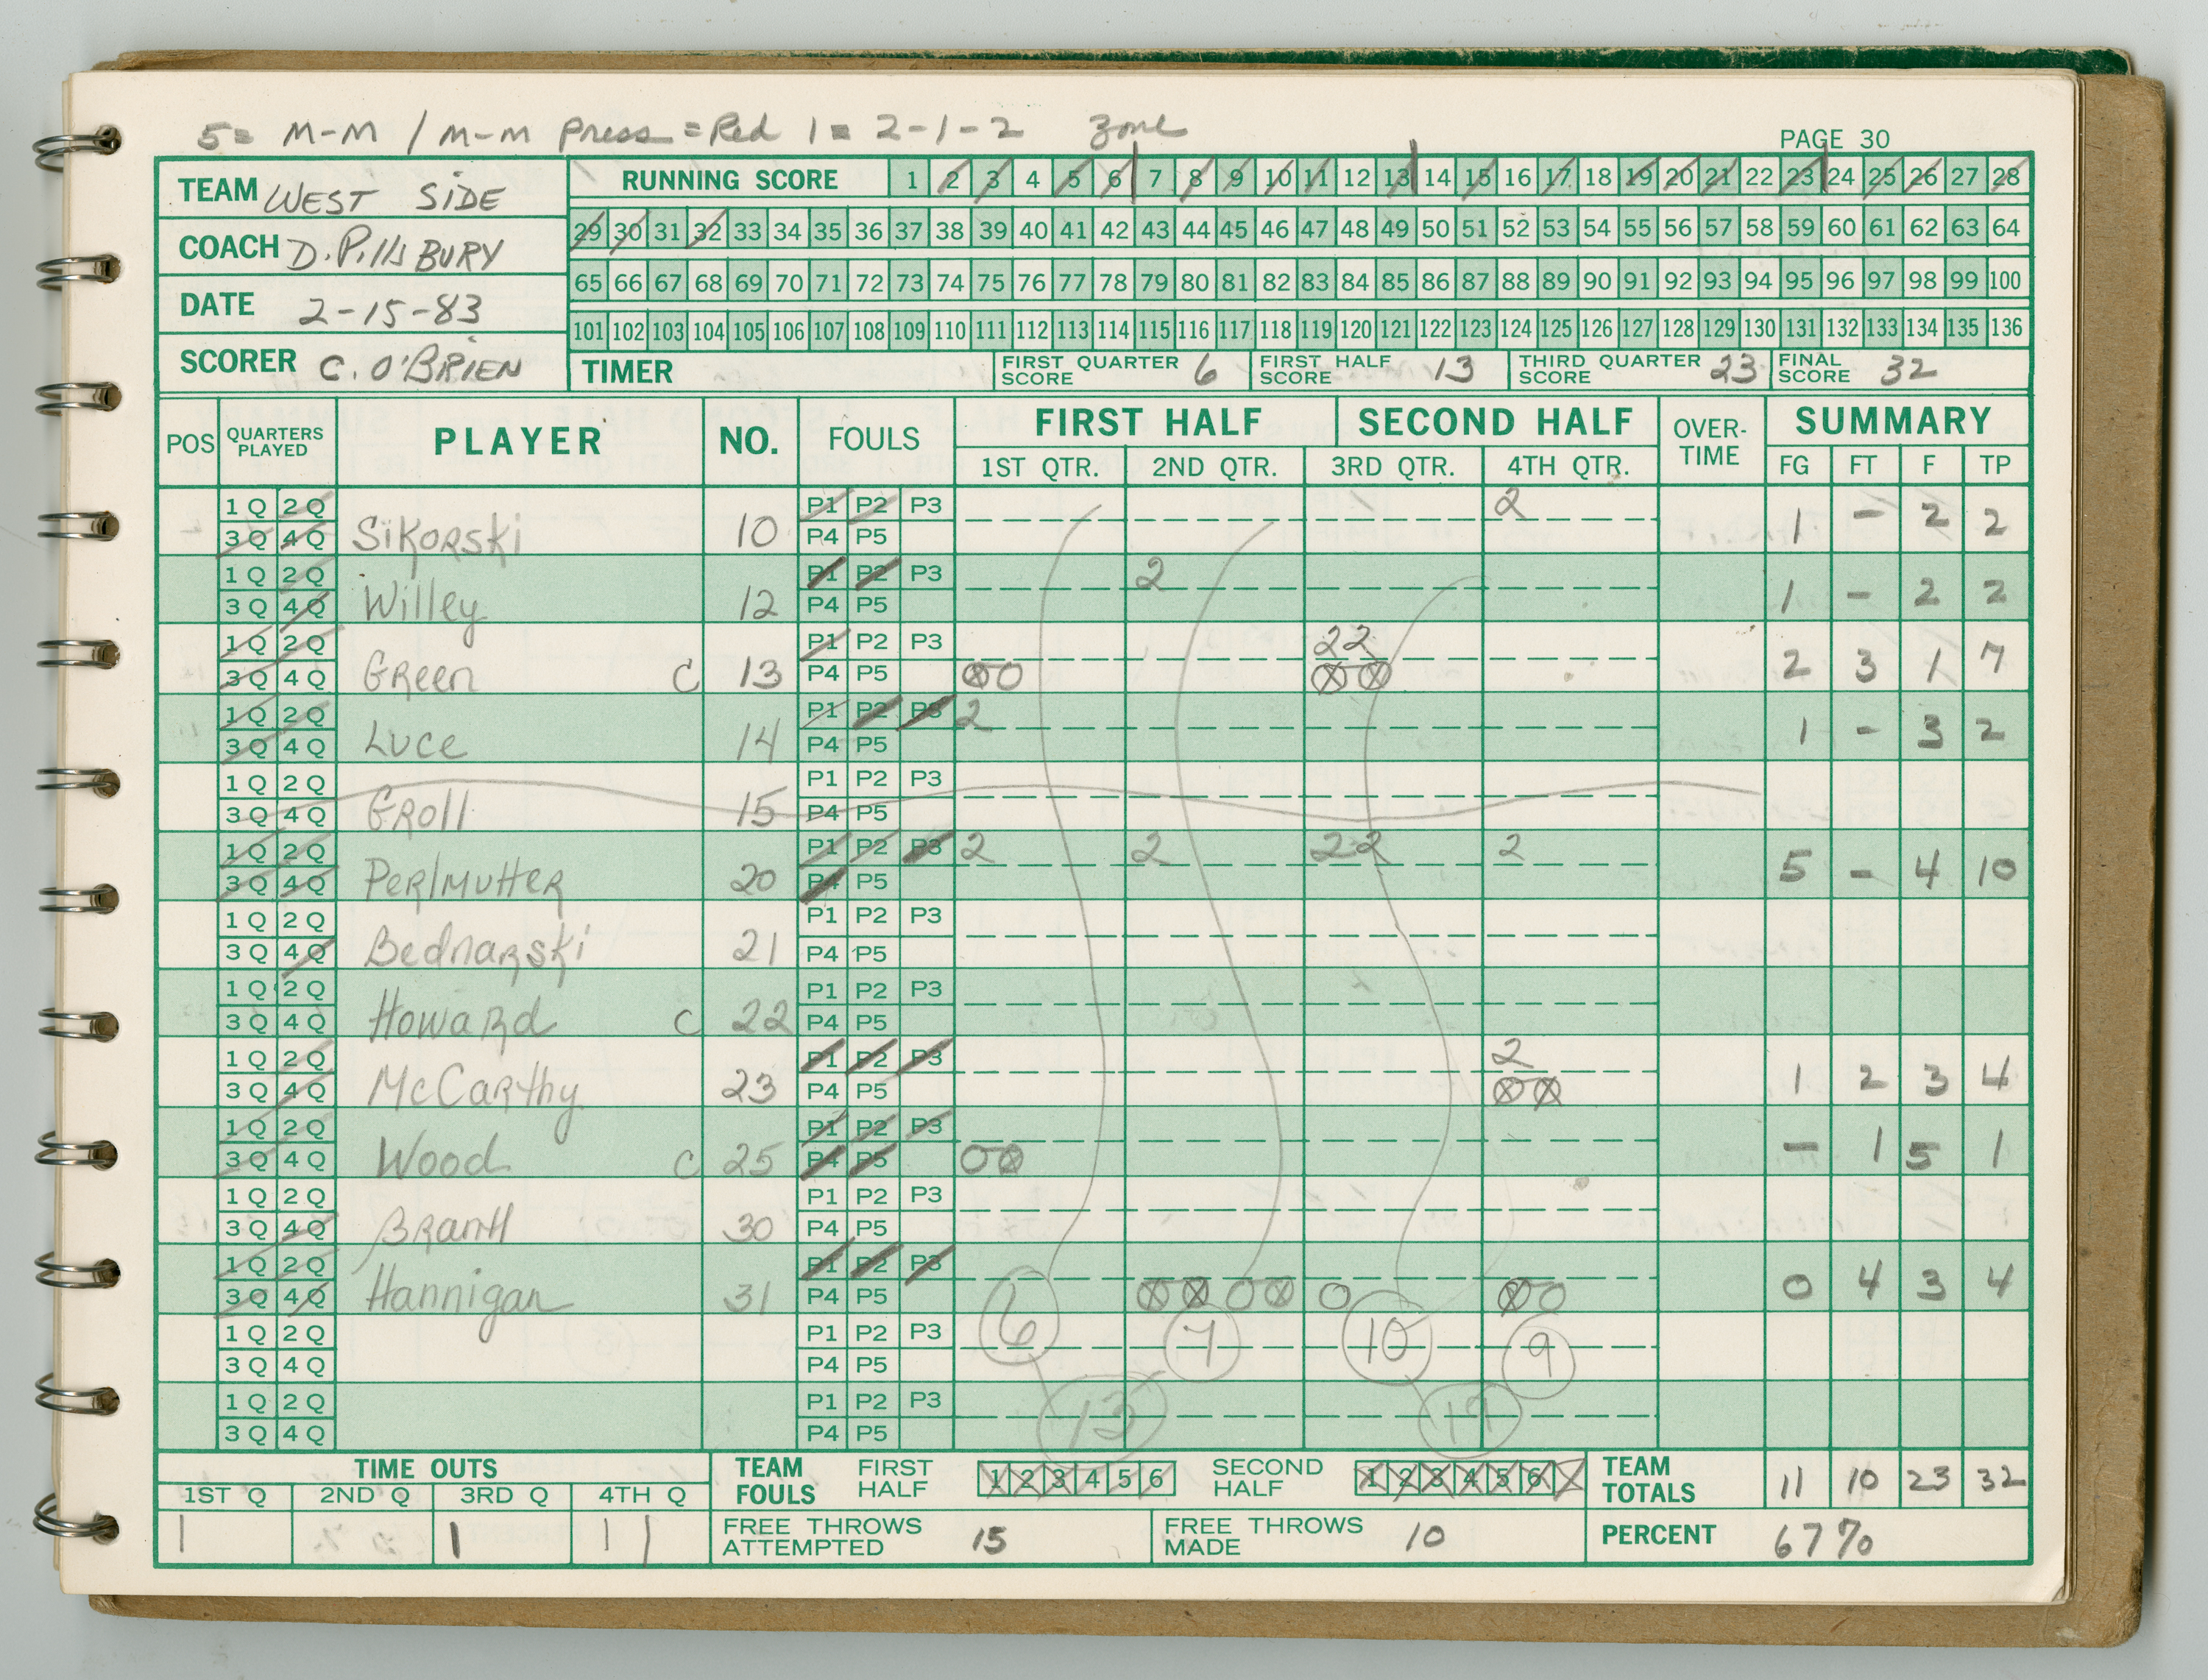 5= M-M / M-M Press = Red 1 = 2-1-2 Zone
PAGE 30
TEAM WEST SIDE
COACH D. Pillsbury
DATE 2-15-83
SCORER C. O'BRIEN
RUNNING SCORE 1 2 3 4 5 6 7 8 9 10 11 12 13 14 15 16 17 18 19 20 21 22 23 24 25 26 27 28
29 30 31 32 33 34 35 36 37 38 39 40 41 42 43 44 45 46 47 48 49 50 51 52 53 54 55 56 57 58 59 60 61 62 63 64
65 66 67 68 69 70 71 72 73 74 75 76 77 78 79 80 81 82 83 84 85 86 87 88 89 90 91 92 93 94 95 96 97 98 99 100
101 102 103 104 105 106 107 108 109 110 111 112 113 114 115 116 117 118 119 120 121 122 123 124 125 126 127 128 129 130 131 132 133 134 135 136
TIMER FIRST QUARTER SCORE 6 FIRST HALF SCORE 13 THIRD QUARTER SCORE 23 FINAL SCORE 32
POS QUARTERS PLAYED PLAYER NO. FOULS FIRST HALF SECOND HALF OVER-TIME SUMMARY
1ST QTR. 2ND QTR. 3RD QTR. 4TH QTR. FG FT F TP
1 Q 2 Q P1 P2 P3 2
3 Q 4 Q Sikorski 10 P4 P5 1 - 2 2
1 Q 2 Q P1 P2 P3 2
3 Q 4 Q Willey 12 P4 P5 1 - 2 2
1 Q 2 Q P1 P2 P3 2 2
3 Q 4 Q Green C 13 P4 P5 2 3 1 7
1 Q 2 Q P1 P2 P3 2
3 Q 4 Q Luce 14 P4 P5 1 - 3 2
1 Q 2 Q P1 P2 P3
3 Q 4 Q Groll 15 P4 P5
1 Q 2 Q P1 P2 P3 2 2 2 2 2
3 Q 4 Q Perlmutter 20 P4 P5 5 - 4 10
1 Q 2 Q P1 P2 P3
3 Q 4 Q Bednarski 21 P4 P5
1 Q 2 Q P1 P2 P3
3 Q 4 Q Howard C 22 P4 P5
1 Q 2 Q P1 P2 P3 2
3 Q 4 Q McCarthy 23 P4 P5 1 2 3 4
1 Q 2 Q P1 P2 P3
3 Q 4 Q Wood C 25 P4 P5 - 1 5 1
1 Q 2 Q P1 P2 P3
3 Q 4 Q 30 P4 P5
1 Q 2 Q P1 P2 P3
3 Q 4 Q Hannigan 31 P4 P5 0 4 3 4
1 Q 2 Q P1 P2 P3 6 7 10 9
3 Q 4 Q P4 P5
1 Q 2 Q P1 P2 P3 13
3 Q 4 Q P4 P5
TIME OUTS TEAM FOULS FIRST HALF 1 2 3 4 5 6 SECOND HALF 1 2 3 4 5 6 TEAM TOTALS 11 10 23 32
1ST Q 2ND Q 3RD Q 4TH Q
1 1 1 1 FREE THROWS ATTEMPTED 15 FREE THROWS MADE 10 PERCENT 67%